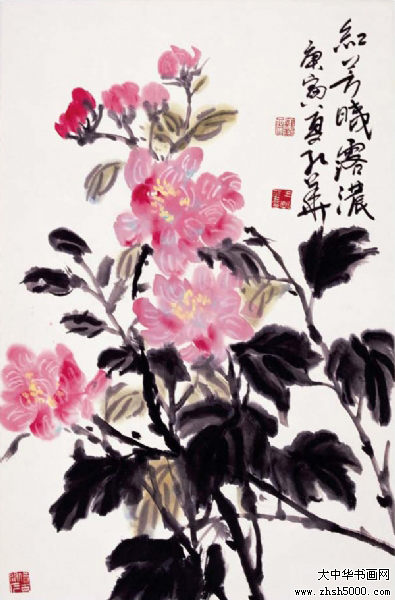 紅芳晓露濃
庚寅夏
大中华书画网
www.zhsh5000.com